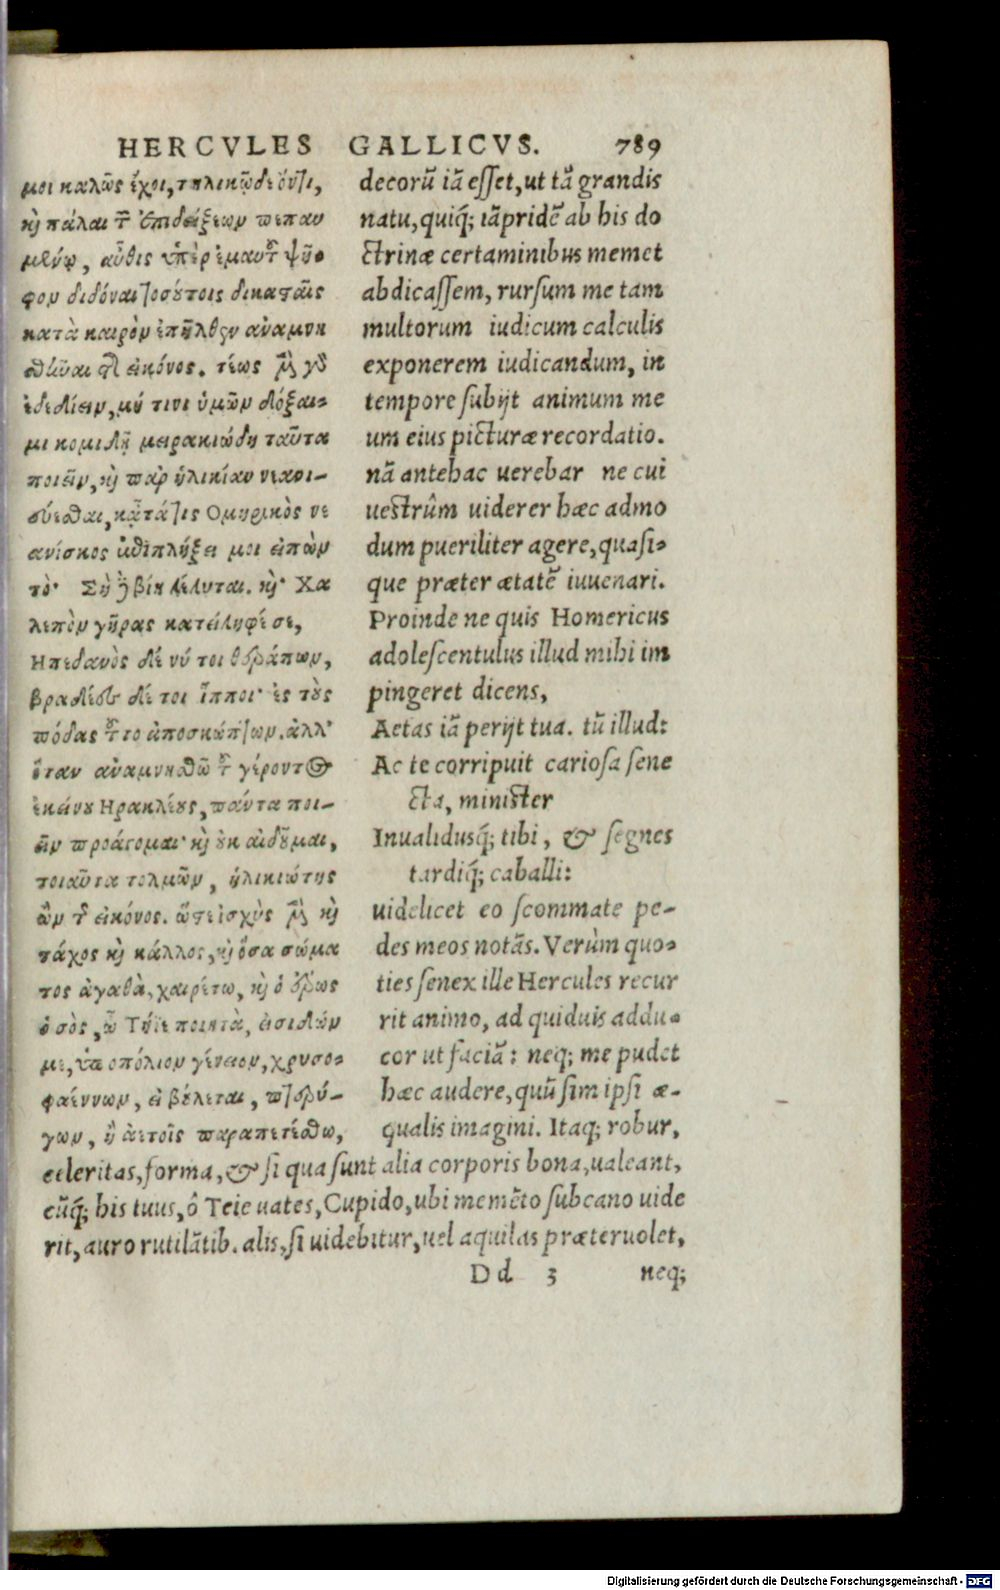 HERCVLES GALLICVS. 789
μοι καλῶς ἔχοι, τηλικῷδε ὄντι,
καὶ πάλαι τῶν ἐπιδείξεων πεπαυ
μένῳ, αὖθις ὑπὲρ ἐμαυτοῦ ψῆ-
φον διδόναι τοσούτοις δικασταῖς
κατὰ καιρὸν ἐπῆλθεν ἀναμνη
σθῆναι τῆς εἰκόνος. τέως μὲν γὰρ
ἐδεδίειν, μή τινι ὑμῶν δόξαι-
μι κομιδῇ μειρακιώδη ταῦτα
ποιεῖν, καὶ παρ' ἡλικίαν νεανι-
εύεσθαι, κᾆτά τις Ὁμηρικὸς νε
ανίσκος ἐπιπλήξει μοι εἰπὼν
τὸ· Σὴ δὲ βίη λέλυται. καὶ· Χα
λεπὸν γῆρας κατείληφέ σε,
Ηπεδανὸς δέ νύ τοι θεράπων,
βραδέες δέ τοι ἵπποι· ἐς τοὺς
πόδας τοῦτο ἀποσκώπτων. ἀλλ'
ὅταν ἀναμνησθῶ τοῦ γέροντος
ἐκείνου Ηρακλέους, πάντα ποι-
εῖν προάγομαι· καὶ οὐκ αἰδοῦμαι,
τοιαῦτα τολμῶν, ἡλικιώτης
ὢν τῆς εἰκόνος. ὥστε ἰσχὺς μὲν καὶ
τάχος καὶ κάλλος, καὶ ὅσα σώμα
τος ἀγαθὰ, χαιρέτω, καὶ ὁ ἔρως
ὁ σὸς, ὦ Τήϊε ποιητὰ, ἐσιδών
με, ὑποπόλιον γένειον, χρυσο-
φαέννων, εἰ βούλεται, πτερύ-
γων, ἢ ἀετοῖς παραπετέσθω,
decorũ iã esset, ut tã grandis
natu, quiq́; iãpridẽ ab his do
ctrinæ certaminibus memet
abdicassem, rursum me tam
multorum iudicum calculis
exponerem iudicandum, in
tempore subijt animum me
um eius picturæ recordatio.
nã antehac uerebar ne cui
uestrûm uiderer hæc admo
dum pueriliter agere, quasi-
que præter ætatẽ iuuenari.
Proinde ne quis Homericus
adolescentulus illud mihi im
pingeret dicens,
Aetas iã perijt tua. tũ illud:
Ac te corripuit cariosa sene
cta, minister
Inualidusq́; tibi, & segnes
tardiq́; caballi:
uidelicet eo scommate pe-
des meos notãs. Verùm quo-
ties senex ille Hercules recur
rit animo, ad quiduis addu-
cor ut faciã: neq; me pudet
hæc audere, quũ sim ipsi æ-
qualis imagini. Itaq; robur,
celeritas, forma, & si qua sunt alia corporis bona, ualeant,
cũq́; his tuus, ô Teie uates, Cupido, ubi memẽto subcano uide
rit, auro rutilãtib. alis, si uidebitur, uel aquilas præteruolet,
Dd 3 neq;
Digitalisierung gefördert durch die Deutsche Forschungsgemeinschaft - DFG